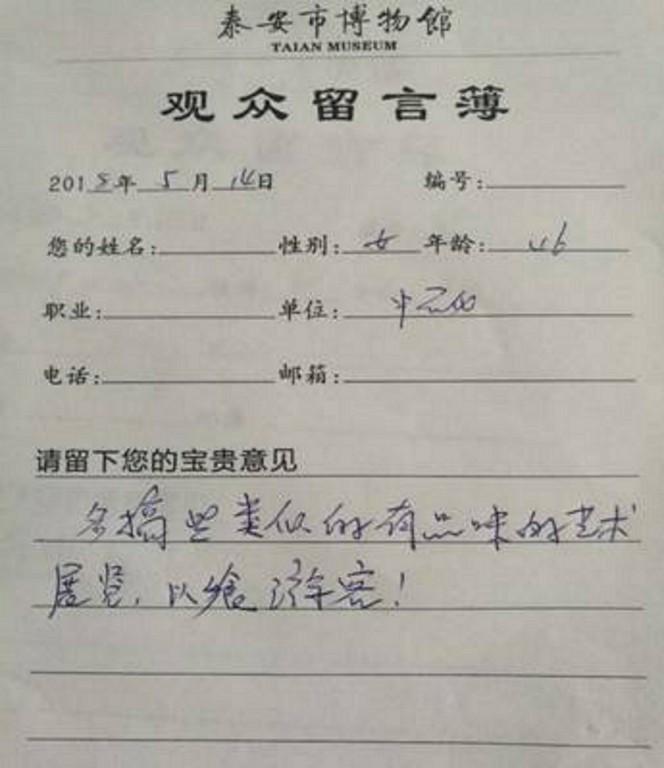 泰安市博物馆
TAIAN MUSEUM
观众留言簿
2015年 5 月 14日 编号:
您的姓名: 性别: 女 年龄: 46
职业: 单位:
电话: 邮箱:
请留下您的宝贵意见
多搞些类似的有品味的艺术
展览，以飨游客！